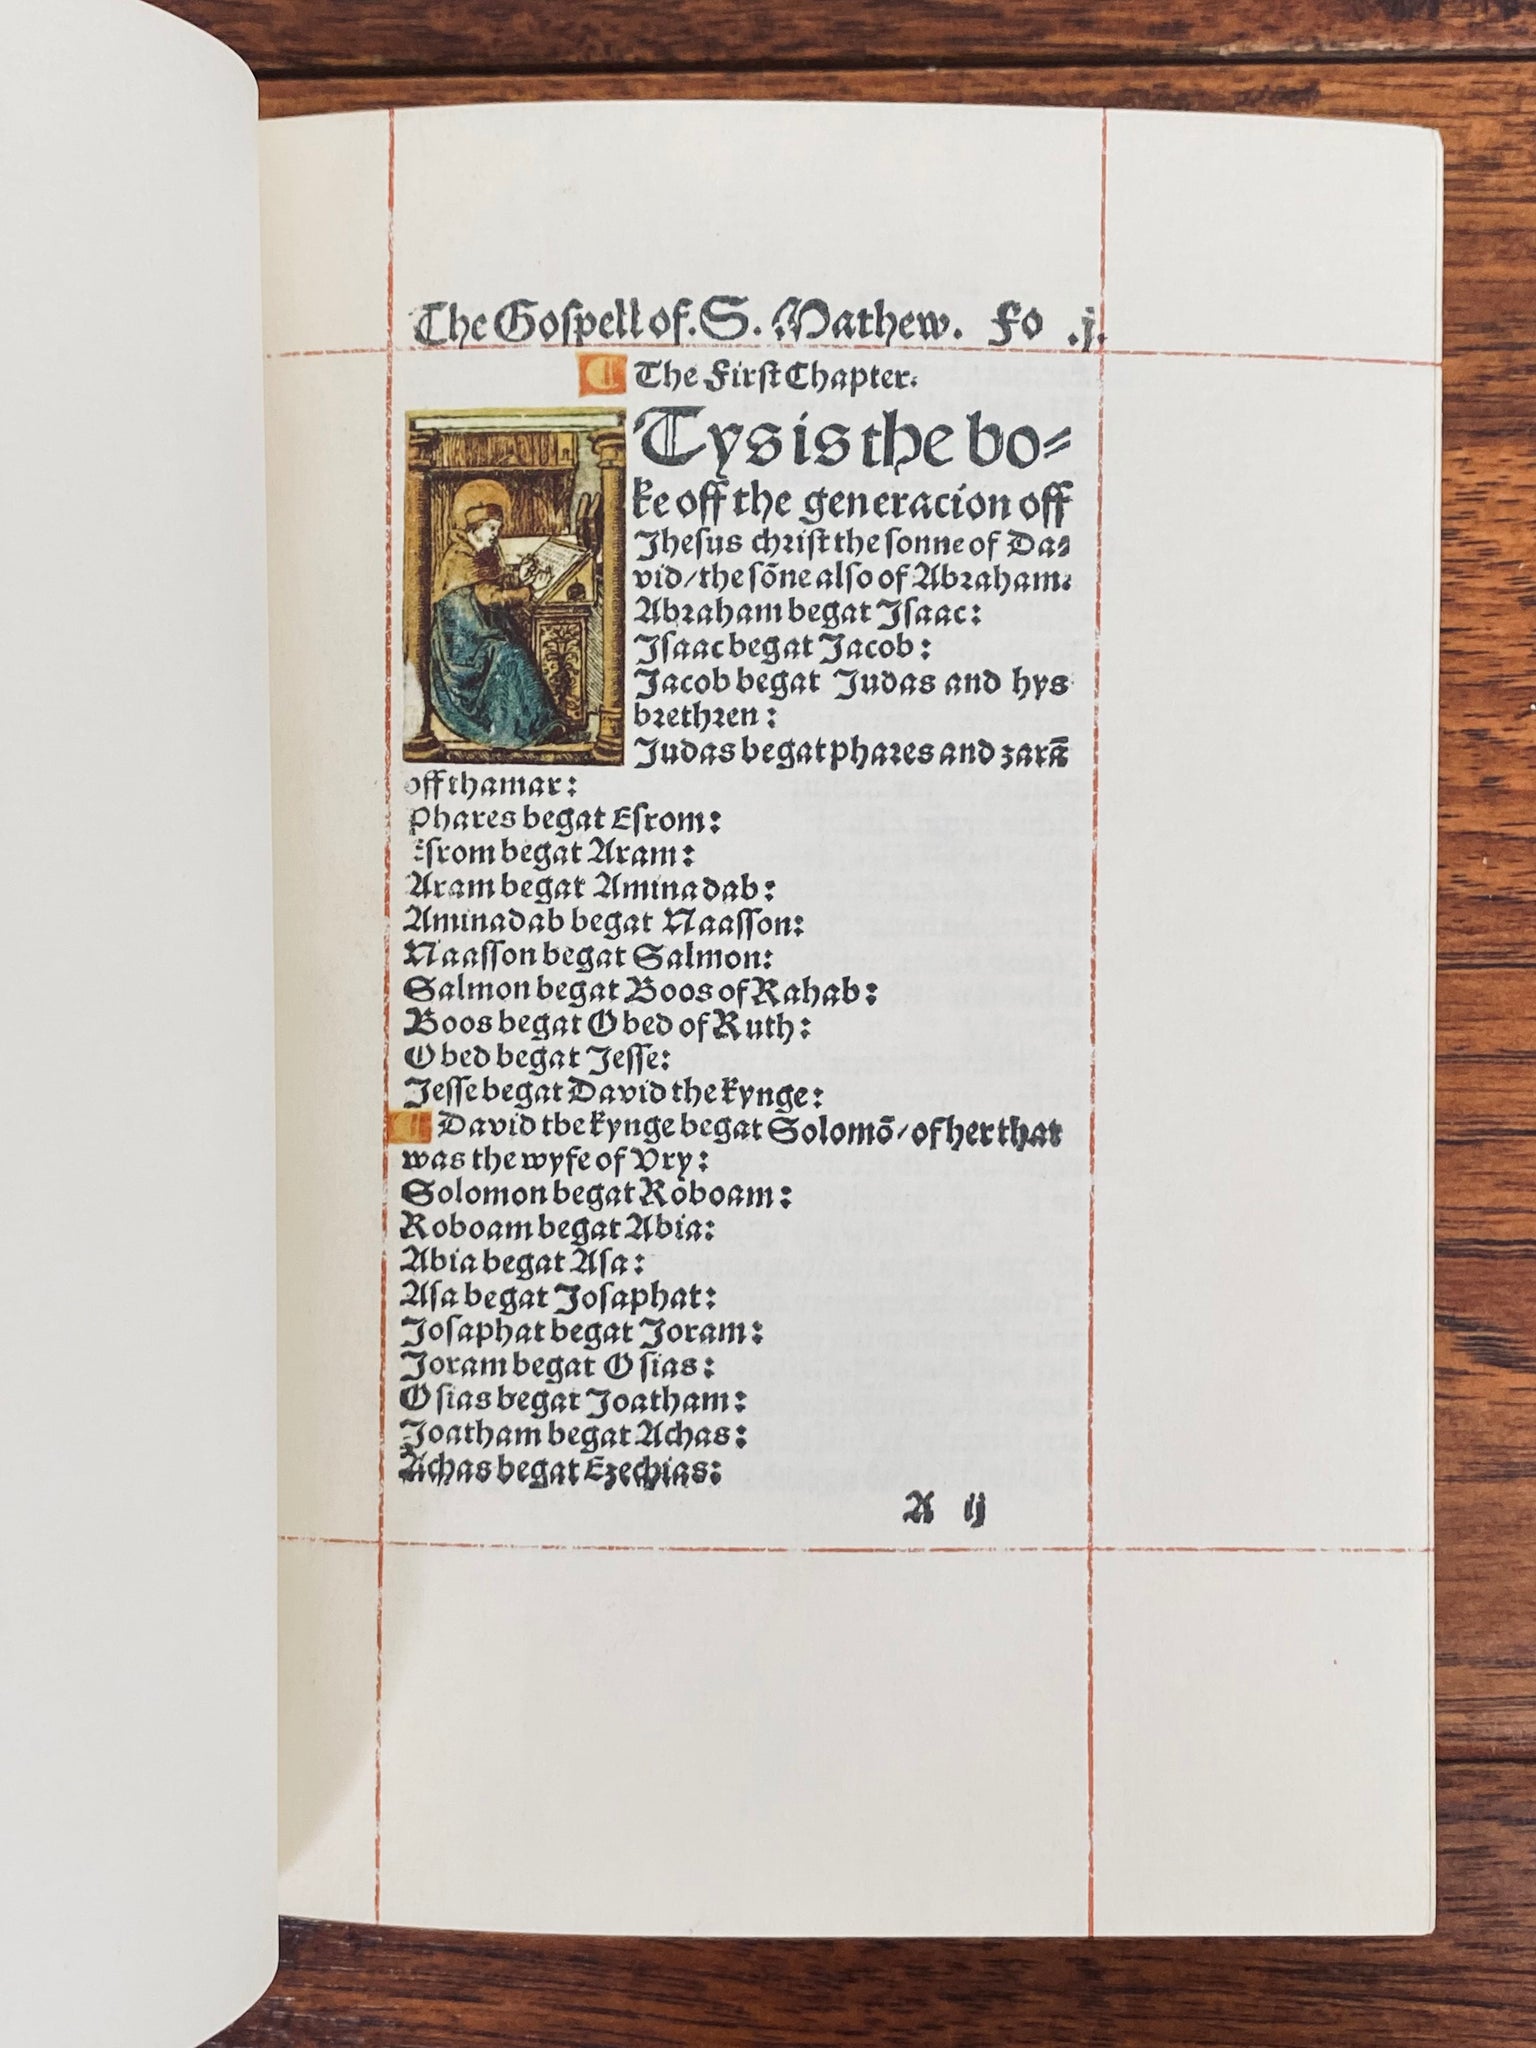 The Gospell of. S. Mathew. Fo .j.
The First Chapter.
Tys is the bo⸗
ke off the generacion off
Jhesus christ the sonne of Da⸗
vid/the sõne also of Abraham:
Abraham begat Isaac:
Isaac begat Jacob:
Jacob begat Judas and hys
brethren:
Judas begat phares and zarã
off thamar:
Phares begat Esrom:
Esrom begat Aram:
Aram begat Aminadab:
Aminadab begat Naasson:
Naasson begat Salmon:
Salmon begat Boos of Rahab:
Boos begat Obed of Ruth:
Obed begat Jesse:
Jesse begat David the kynge:
David the kynge begat Solomõ/of her that
was the wyfe of Vry:
Solomon begat Roboam:
Roboam begat Abia:
Abia begat Asa:
Asa begat Josaphat:
Josaphat begat Joram:
Joram begat Osias:
Osias begat Joatham:
Joatham begat Achas:
Achas begat Ezechias:
A ij